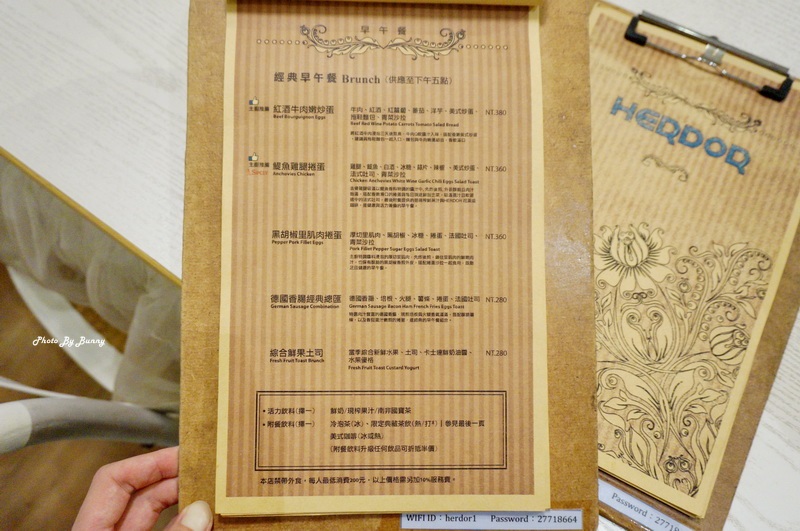 早午餐
經典早午餐 Brunch (供應至下午五點)
主廚推薦 紅酒牛肉嫩炒蛋
Beef Bourguignon Eggs
牛肉、紅酒、紅蘿蔔、蕃茄、洋芋、美式炒蛋、
拖鞋麵包、青菜沙拉
Beef Red Wine Potato Carrots Tomato Salad Bread
NT.380
主廚推薦 鯷魚雞腿捲蛋
Anchovies Chicken
雞腿、鯷魚、白酒、冰糖、蒜片、辣椒、美式炒蛋、
法式吐司、青菜沙拉
Chicken Anchovies White Wine Garlic Chili Eggs Salad Toast
NT.360
黑胡椒里肌肉捲蛋
Pepper Pork Fillet Eggs
厚切里肌肉、黑胡椒、冰糖、捲蛋、法國吐司、
青菜沙拉
Pork Fillet Pepper Sugar Eggs Salad Toast
NT.360
德國香腸經典總匯
German Sausage Combination
德國香腸、培根、火腿、薯條、捲蛋、法國吐司
German Sausage Bacon Ham French Fries Eggs Toast
NT.280
綜合鮮果土司
Fresh Fruit Toast Brunch
當季綜合新鮮水果、土司、卡士達鮮奶油醬、
水果優格
Fresh Fruit Toast Custard Yogurt
NT.280
• 活力飲料(擇一) 鮮奶/現榨果汁/南非國寶茶
• 附餐飲料(擇一) 冷泡茶(冰)、限定典藏茶飲(熱/打*)|參見最後一頁
美式咖啡(冰或熱)
(附餐飲料升級任何飲品可折抵半價)
本店禁帶外食，每人最低消費200元，以上價格需另加10%服務費。
WIFI ID：herdor1 Password：27718664
HERDOR
Password：27718
Photo By Bunny